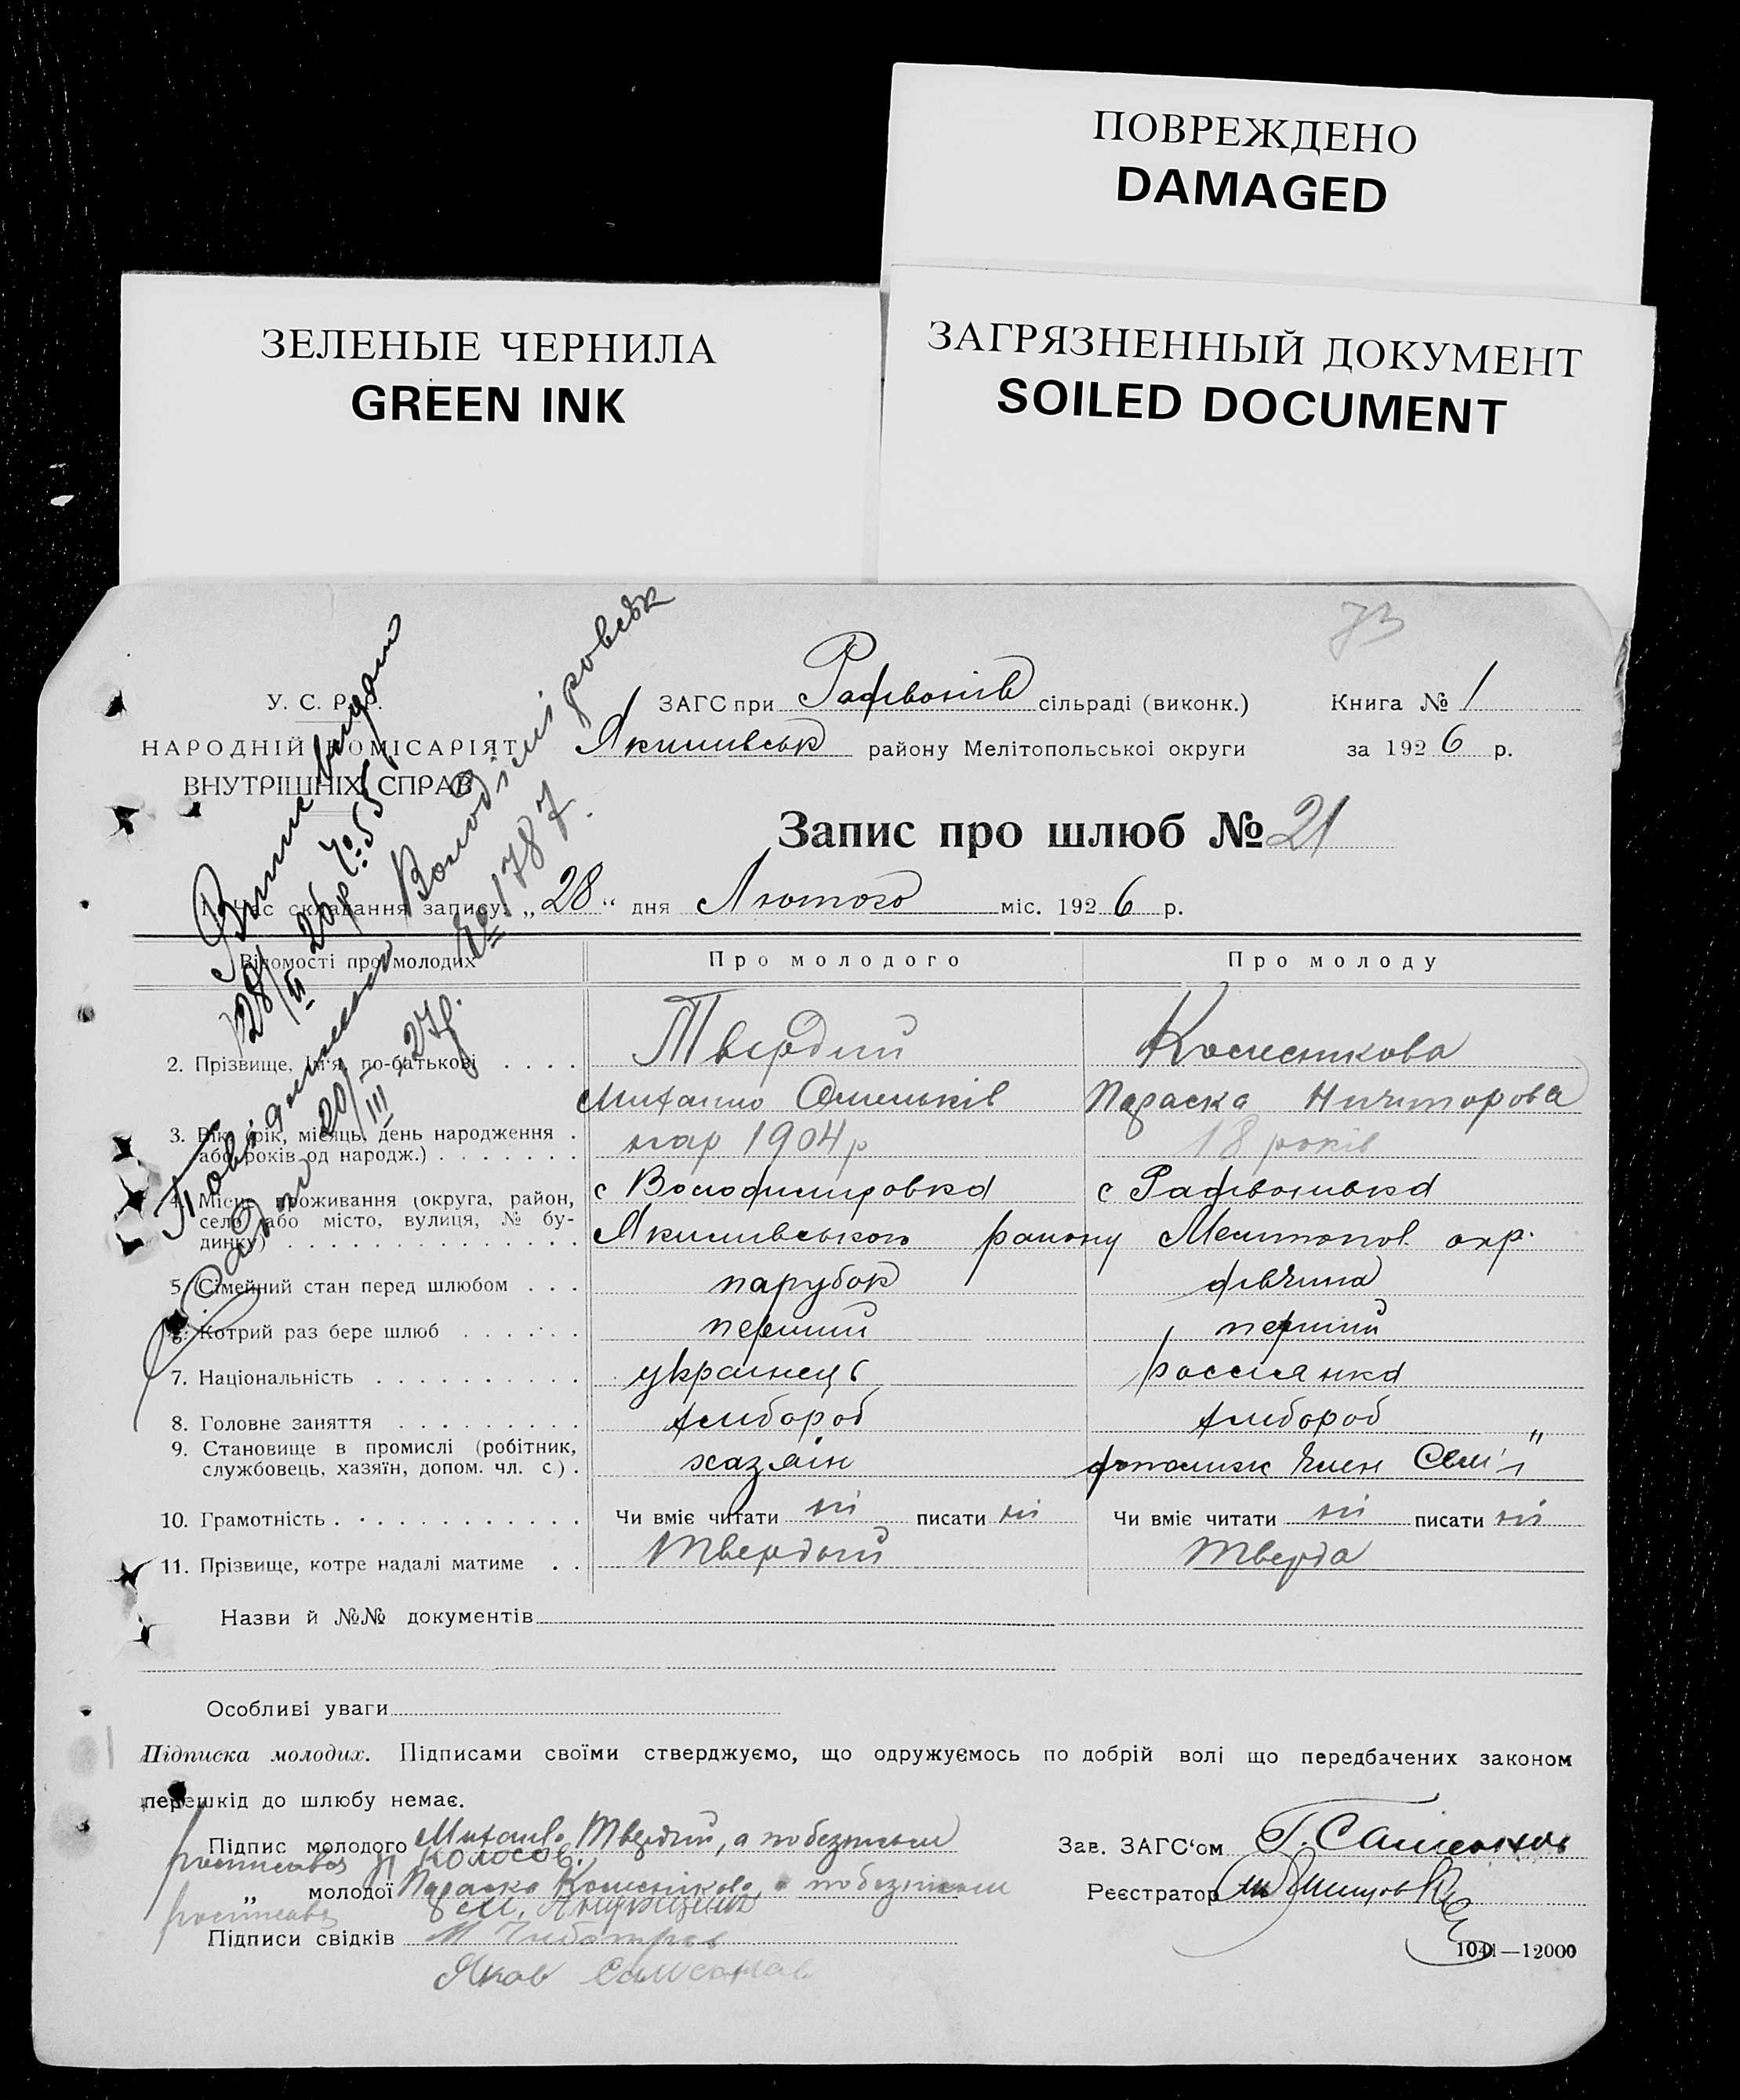 ПОВРЕЖДЕНО
DAMAGED
ЗЕЛЕНЫЕ ЧЕРНИЛА
GREEN INK
ЗАГРЯЗНЕННЫЙ ДОКУМЕНТ
SOILED DOCUMENT
73
У. С. Р. Р.
НАРОДНІЙ КОМІСАРІЯТ
ВНУТРІШНІХ СПРАВ
ЗАГС при Радівонів сільраді (виконк.) Книга № 1
Якимівськ району Мелітопольської округи за 1926 р.
Запис про шлюб № 21
1. Час складання запису: „28“ дня Лютого міс. 1926 р.
Відомості про молодих Про молодого Про молоду
2. Прізвище, ім'я, по-батькові . . . . Твердий Колеснікова
Михайло Омельків Параска Ничипорова
3. Вік (рік, місяць, день народження . нар 1904 р 18 років
або років од народж.) . . . . . . .
4. Місце проживання (округа, район, с Володимировка с Радівонівка
село або місто, вулиця, № бу-
динку) . . . . . . . . . . . . . . Якимівського району Мелитопол. окр.
5. Сімейний стан перед шлюбом . . . парубок дівчина
6. Котрий раз бере шлюб . . . . . . перший перший
7. Національність . . . . . . . . . . украінець россіянка
8. Головне заняття . . . . . . . . . хлибороб хлибороб
9. Становище в промислі (робітник,
службовець, хазяїн, допом. чл. с.) . хазяін допоміж член Семʼі
10. Грамотність . . . . . . . . . . . . Чи вміє читати ні писати ні Чи вміє читати ні писати ні
11. Прізвище, котре надалі матиме . . Твердий Тверда
Назви й №№ документів
Особливі уваги
Підписка молодих. Підписами своїми стверджуємо, що одружуємось по добрій волі що передбачених законом
перешкід до шлюбу немає.
Підпис молодого Михайло Твердий, а по безписьм Зав. ЗАГС‘ом Г. Самсонов
росписався Колосов.
„ молодої Параска Колеснікова, а по безписьм Реєстратор
росписався
Підписи свідків М Чиботарев
1041—12000
Яков Самсонов
Випис видані
28/II 26 р № 55
Повідомлення Володіміровськ
20/III 27 р. № 1787.